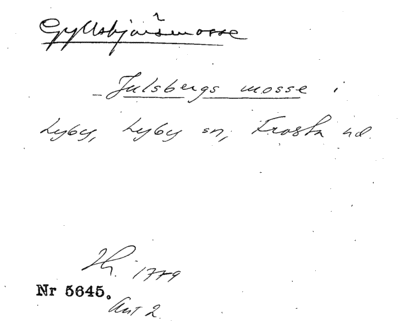 Gyllsbjärsmosse
- Julsbergs mosse i
Lyby, Lyby sn, Frosta hd
Hh. 1779
Nr 5645.
Art 2